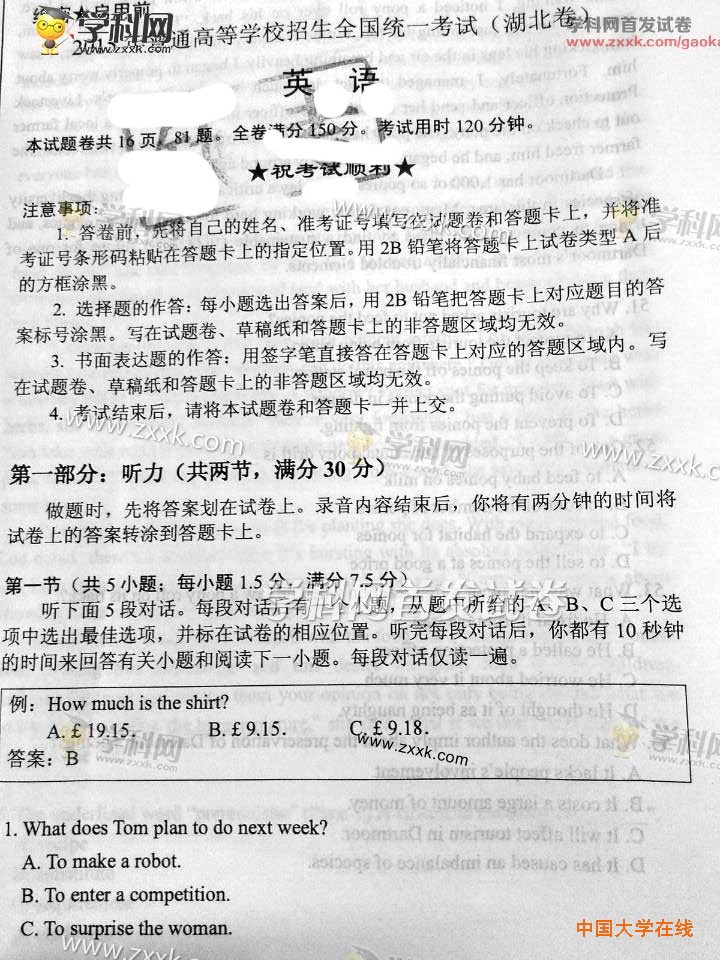 ★启用前
学科网首发试卷
www.zxxk.com/gaoka
通高等学校招生全国统一考试（湖北卷）
英 语
本试题卷共 16 页，81 题。全卷满分 150 分。考试用时 120 分钟。
★祝考试顺利★
注意事项：
1. 答卷前，先将自己的姓名、准考证号填写在试题卷和答题卡上，并将准
考证号条形码粘贴在答题卡上的指定位置。用 2B 铅笔将答题卡上试卷类型 A 后
的方框涂黑。
2. 选择题的作答：每小题选出答案后，用 2B 铅笔把答题卡上对应题目的答
案标号涂黑。写在试题卷、草稿纸和答题卡上的非答题区域均无效。
3. 书面表达题的作答：用签字笔直接答在答题卡上对应的答题区域内。写
在试题卷、草稿纸和答题卡上的非答题区域均无效。
4. 考试结束后，请将本试题卷和答题卡一并上交。
学科网
www.zxxk.com
第一部分：听力（共两节，满分 30 分）
做题时，先将答案划在试卷上。录音内容结束后，你将有两分钟的时间将
试卷上的答案转涂到答题卡上。
第一节（共 5 小题；每小题 1.5 分，满分 7.5 分）
学科网首发试卷
听下面 5 段对话。每段对话后有一个小题，从题中所给的 A、B、C 三个选
项中选出最佳选项，并标在试卷的相应位置。听完每段对话后，你都有 10 秒钟
的时间来回答有关小题和阅读下一小题。每段对话仅读一遍。
例：How much is the shirt?
A. £ 19.15. B. £ 9.15. C. £ 9.18.
答案：B
学科网
www.zxxk.com
1. What does Tom plan to do next week?
A. To make a robot.
B. To enter a competition.
C. To surprise the woman.
中国大学在线
www.zxxk.com